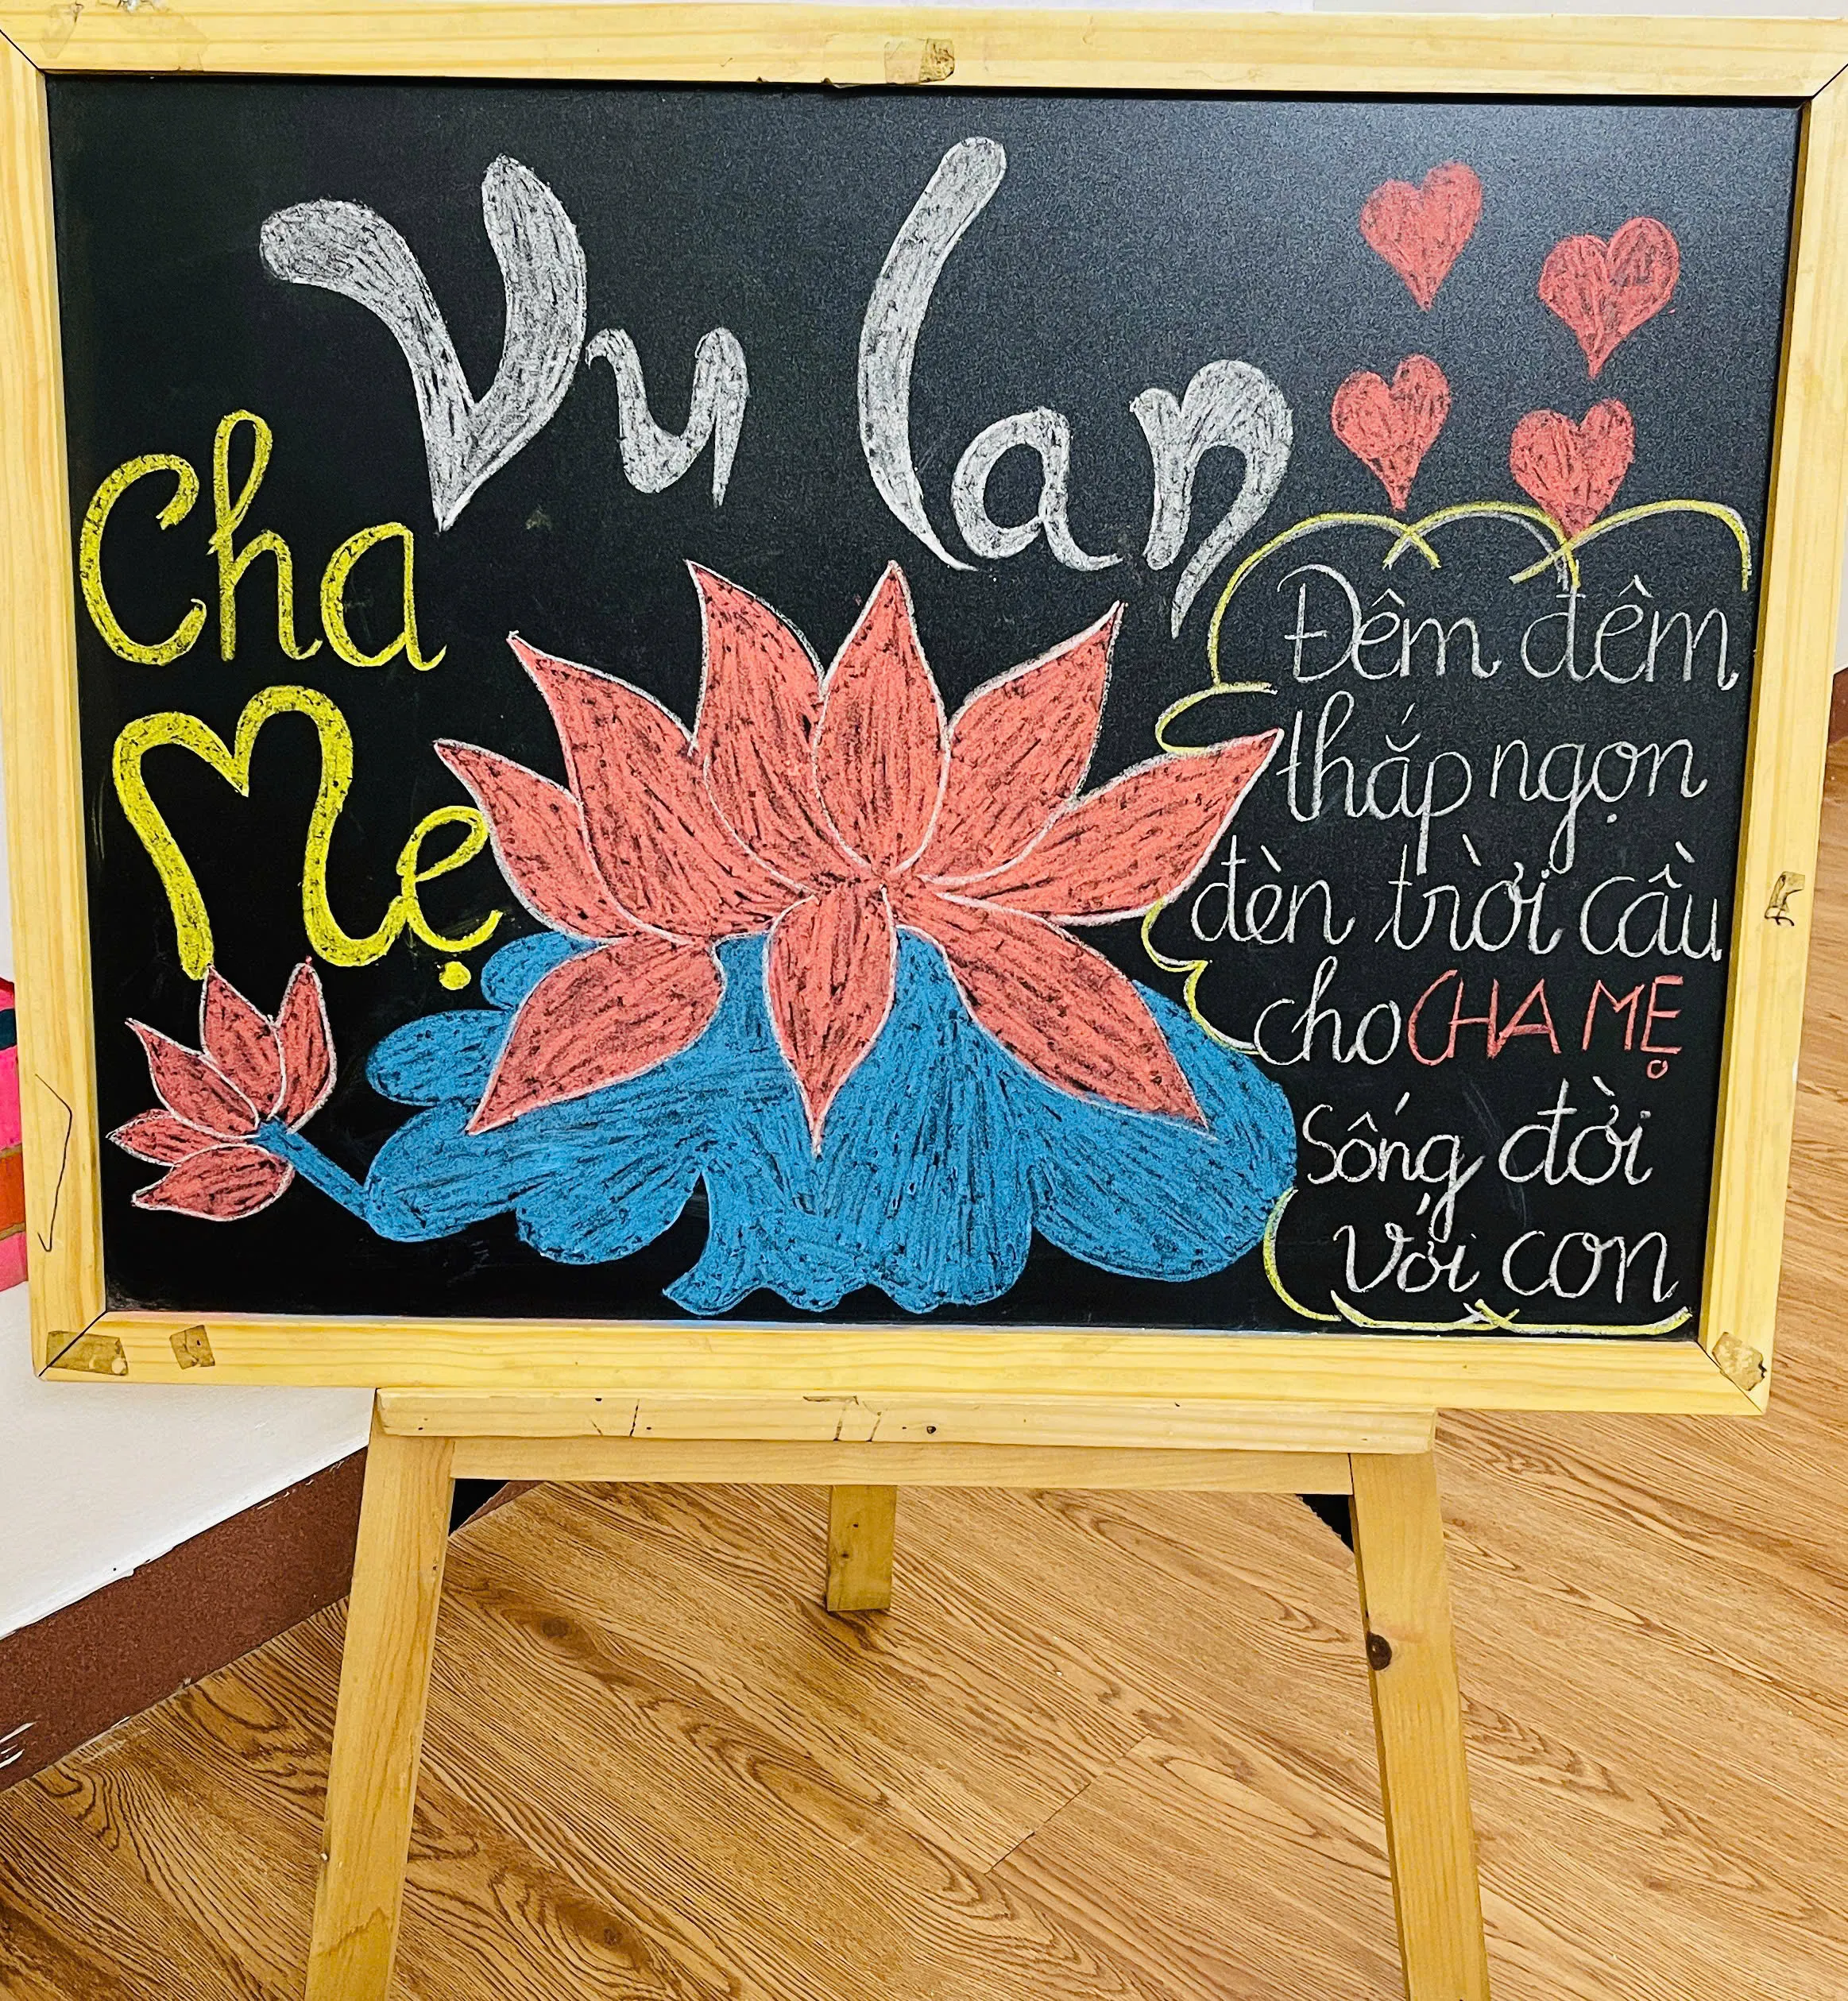 Vu lan
Cha
Mẹ
Đêm đêm
thắp ngọn
đèn trời cầu
cho CHA MẸ
Sống đời
Với con